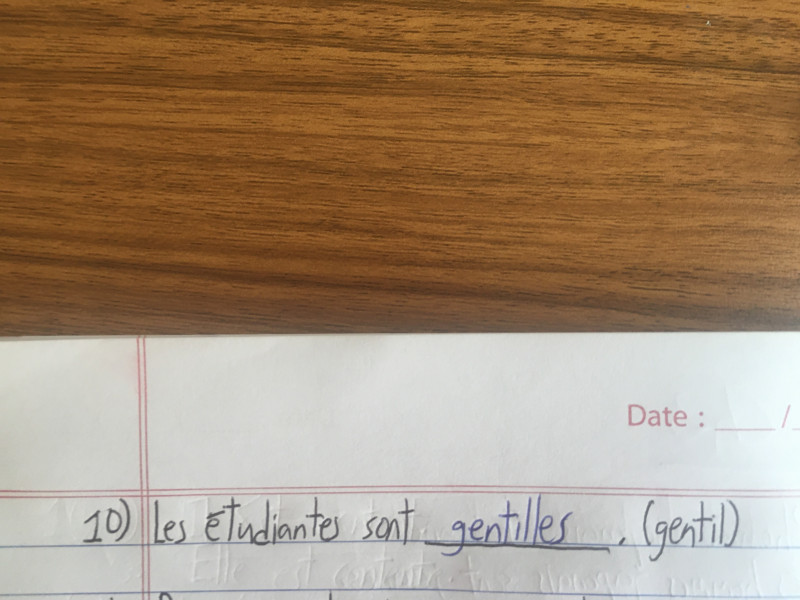 Date : ____ /
10) Les étudiantes sont gentilles . (gentil)